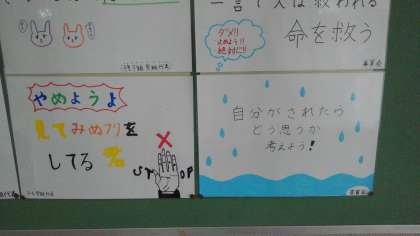 一言で人は救われる
命を救う
ダメ!!
やめよう!!
絶対に!!
やめようよ
見てみぬフリを
してる君
STOP
自分がされたら
どう思うか
考えよう!